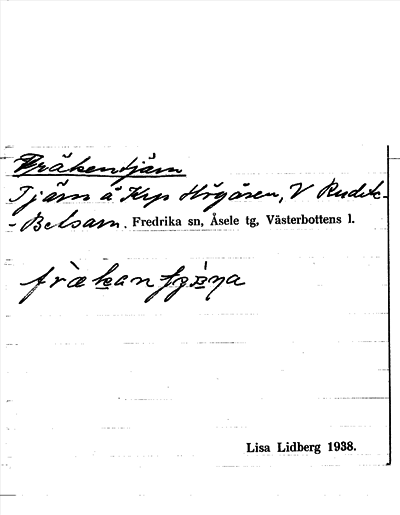 Fräkentjärn
Tjärn å Krp Högåsen, V Rudik-
-Betsarn. Fredrika sn, Åsele tg, Västerbottens l.
Lisa Lidberg 1938.